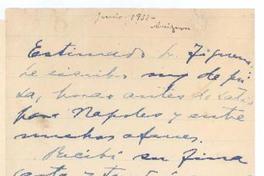 Junio 1951-
Estimado Sr. Figueroa
Le escribo muy de pri
sa, horas antes de salir
para Napoles y entre
muchos afanes.
Recibí su fina
carta y